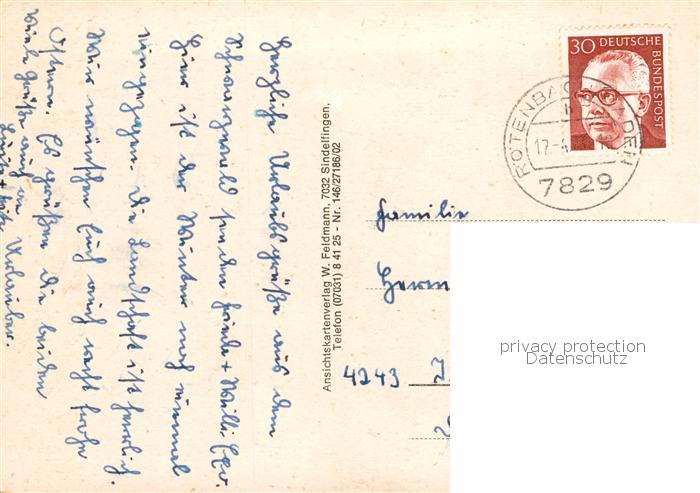 Herzliche Urlaubsgrüße aus dem
Schwarzwald senden Friede + Willi.
Hier ist der Winter noch einmal
eingezogen. Die Landschaft ist herrlich.
Wir wünschen Euch auch recht frohe
Ostern. Es grüßen die beiden
Urlauber.
viele Grüße auch an
Ansichtskartenverlag W. Feldmann, 7032 Sindelfingen,
Telefon (07031) 8 41 25 - Nr. 146/27186/02
30 DEUTSCHE
BUNDESPOST
RÖTENBACH BADEN
17.-
7829
Familie
Herm
4243
privacy protection
Datenschutz